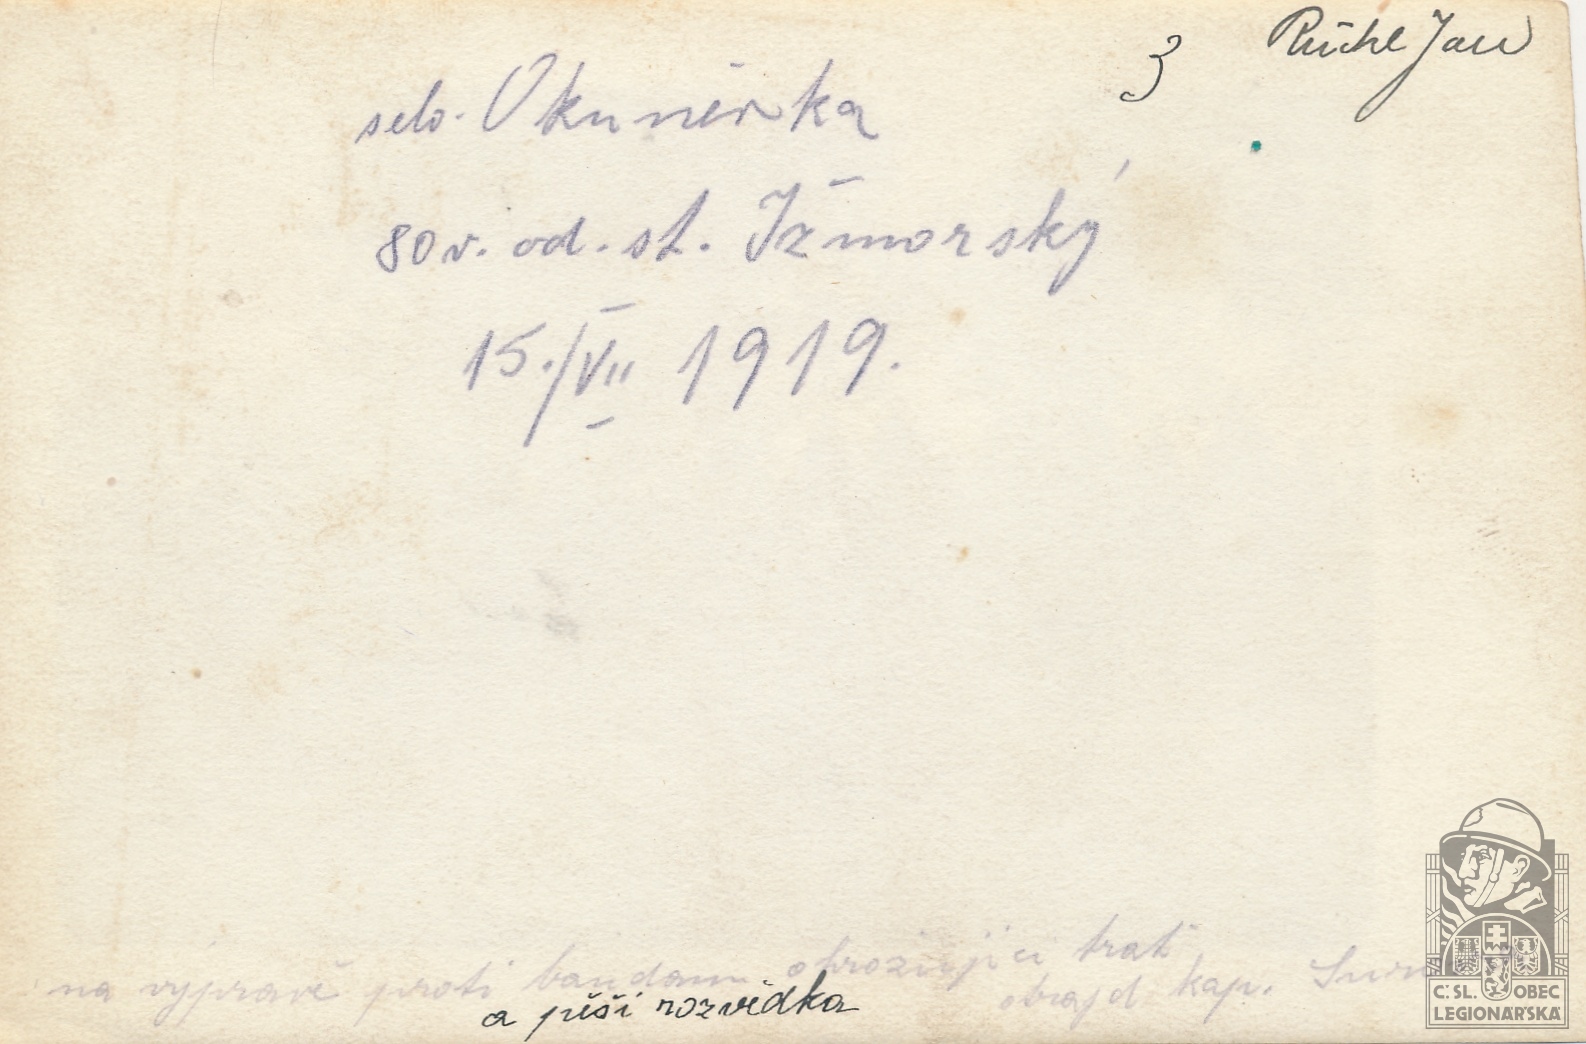 3 Rückl Jan
selo. Okuněvka
80 v. od. st. Ižmorský
15./VII 1919.
na výpravě proti bandam ohrozujíci trať
a pěší rozvědka
obrajd kap.
Č. SL. OBEC
LEGIONÁŘSKÁ